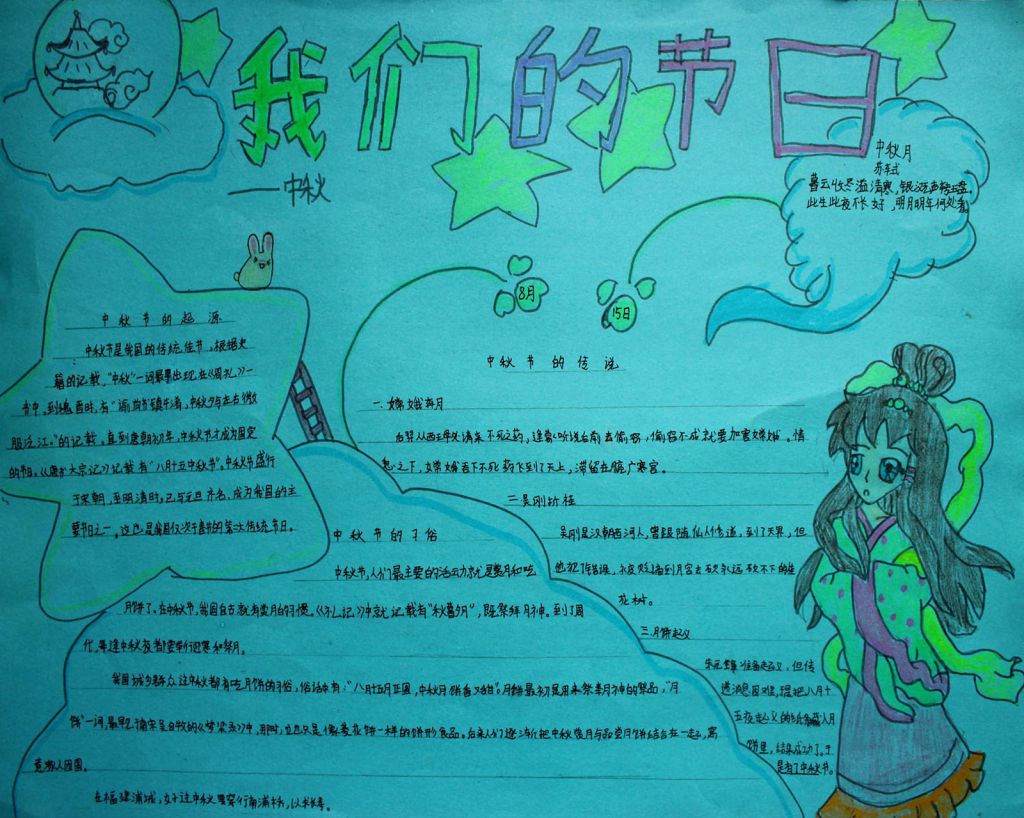 我们的节日
——中秋
中秋月
苏轼
暮云收尽溢清寒，银汉无声转玉盘。
此生此夜不长好，明月明年何处看。
8月
15日
中秋节的起源
中秋节是我国的传统佳节，根据史
籍的记载，“中秋”一词最早出现在《周礼》一
书中，到魏晋时，有“谕尚书镇牛渚，中秋夕与左右微
服泛江。”的记载。直到唐朝初年，中秋节才成为固定
的节日。《唐书·太宗记》记载有“八月十五中秋节”。中秋节盛行
于宋朝，至明清时，已与元旦齐名，成为我国的主
要节日之一。这也是我国仅次于春节的第二大传统节日。
中秋节的传说
一、嫦娥奔月
后羿从西王母处请来不死之药，逢蒙听说后前去偷窃，偷窃不成就要加害嫦娥。情
急之下，嫦娥吞下不死药飞到了天上，滞留在广寒宫。
二、吴刚折桂
吴刚是汉朝西河人，曾跟随仙人修道，到了天界，但
他犯了错误，
到月宫去砍永远砍不下的桂
花树。
三、月饼起义
朱元璋准备起义，但传
递消息困难，
把八月十
五夜起义的纸条藏入月
饼里，结果成功了。于
是有了中秋节。
中秋节的习俗
中秋节，人们最主要的活动就是赏月和吃
月饼了。在中秋节，我国自古就有赏月的习惯。《礼记》中就记载有“秋暮夕月”，既祭拜月神。到了周
代，每逢中秋夜都要举行迎寒和祭月。
我国城乡群众过中秋都有吃月饼的习俗，俗话中有：“八月十五月正圆，中秋月饼香又甜”。月饼最初是用来祭奉月神的祭品，“月
饼”一词，最早见于南宋吴自牧的《梦梁录》中，那时，它也只是像菱花饼一样的饼形食品。后来人们逐渐把中秋赏月与品尝月饼结合在一起，寓
意家人团圆。
在福建浦城，女子过中秋要穿行南浦桥，以求长寿。